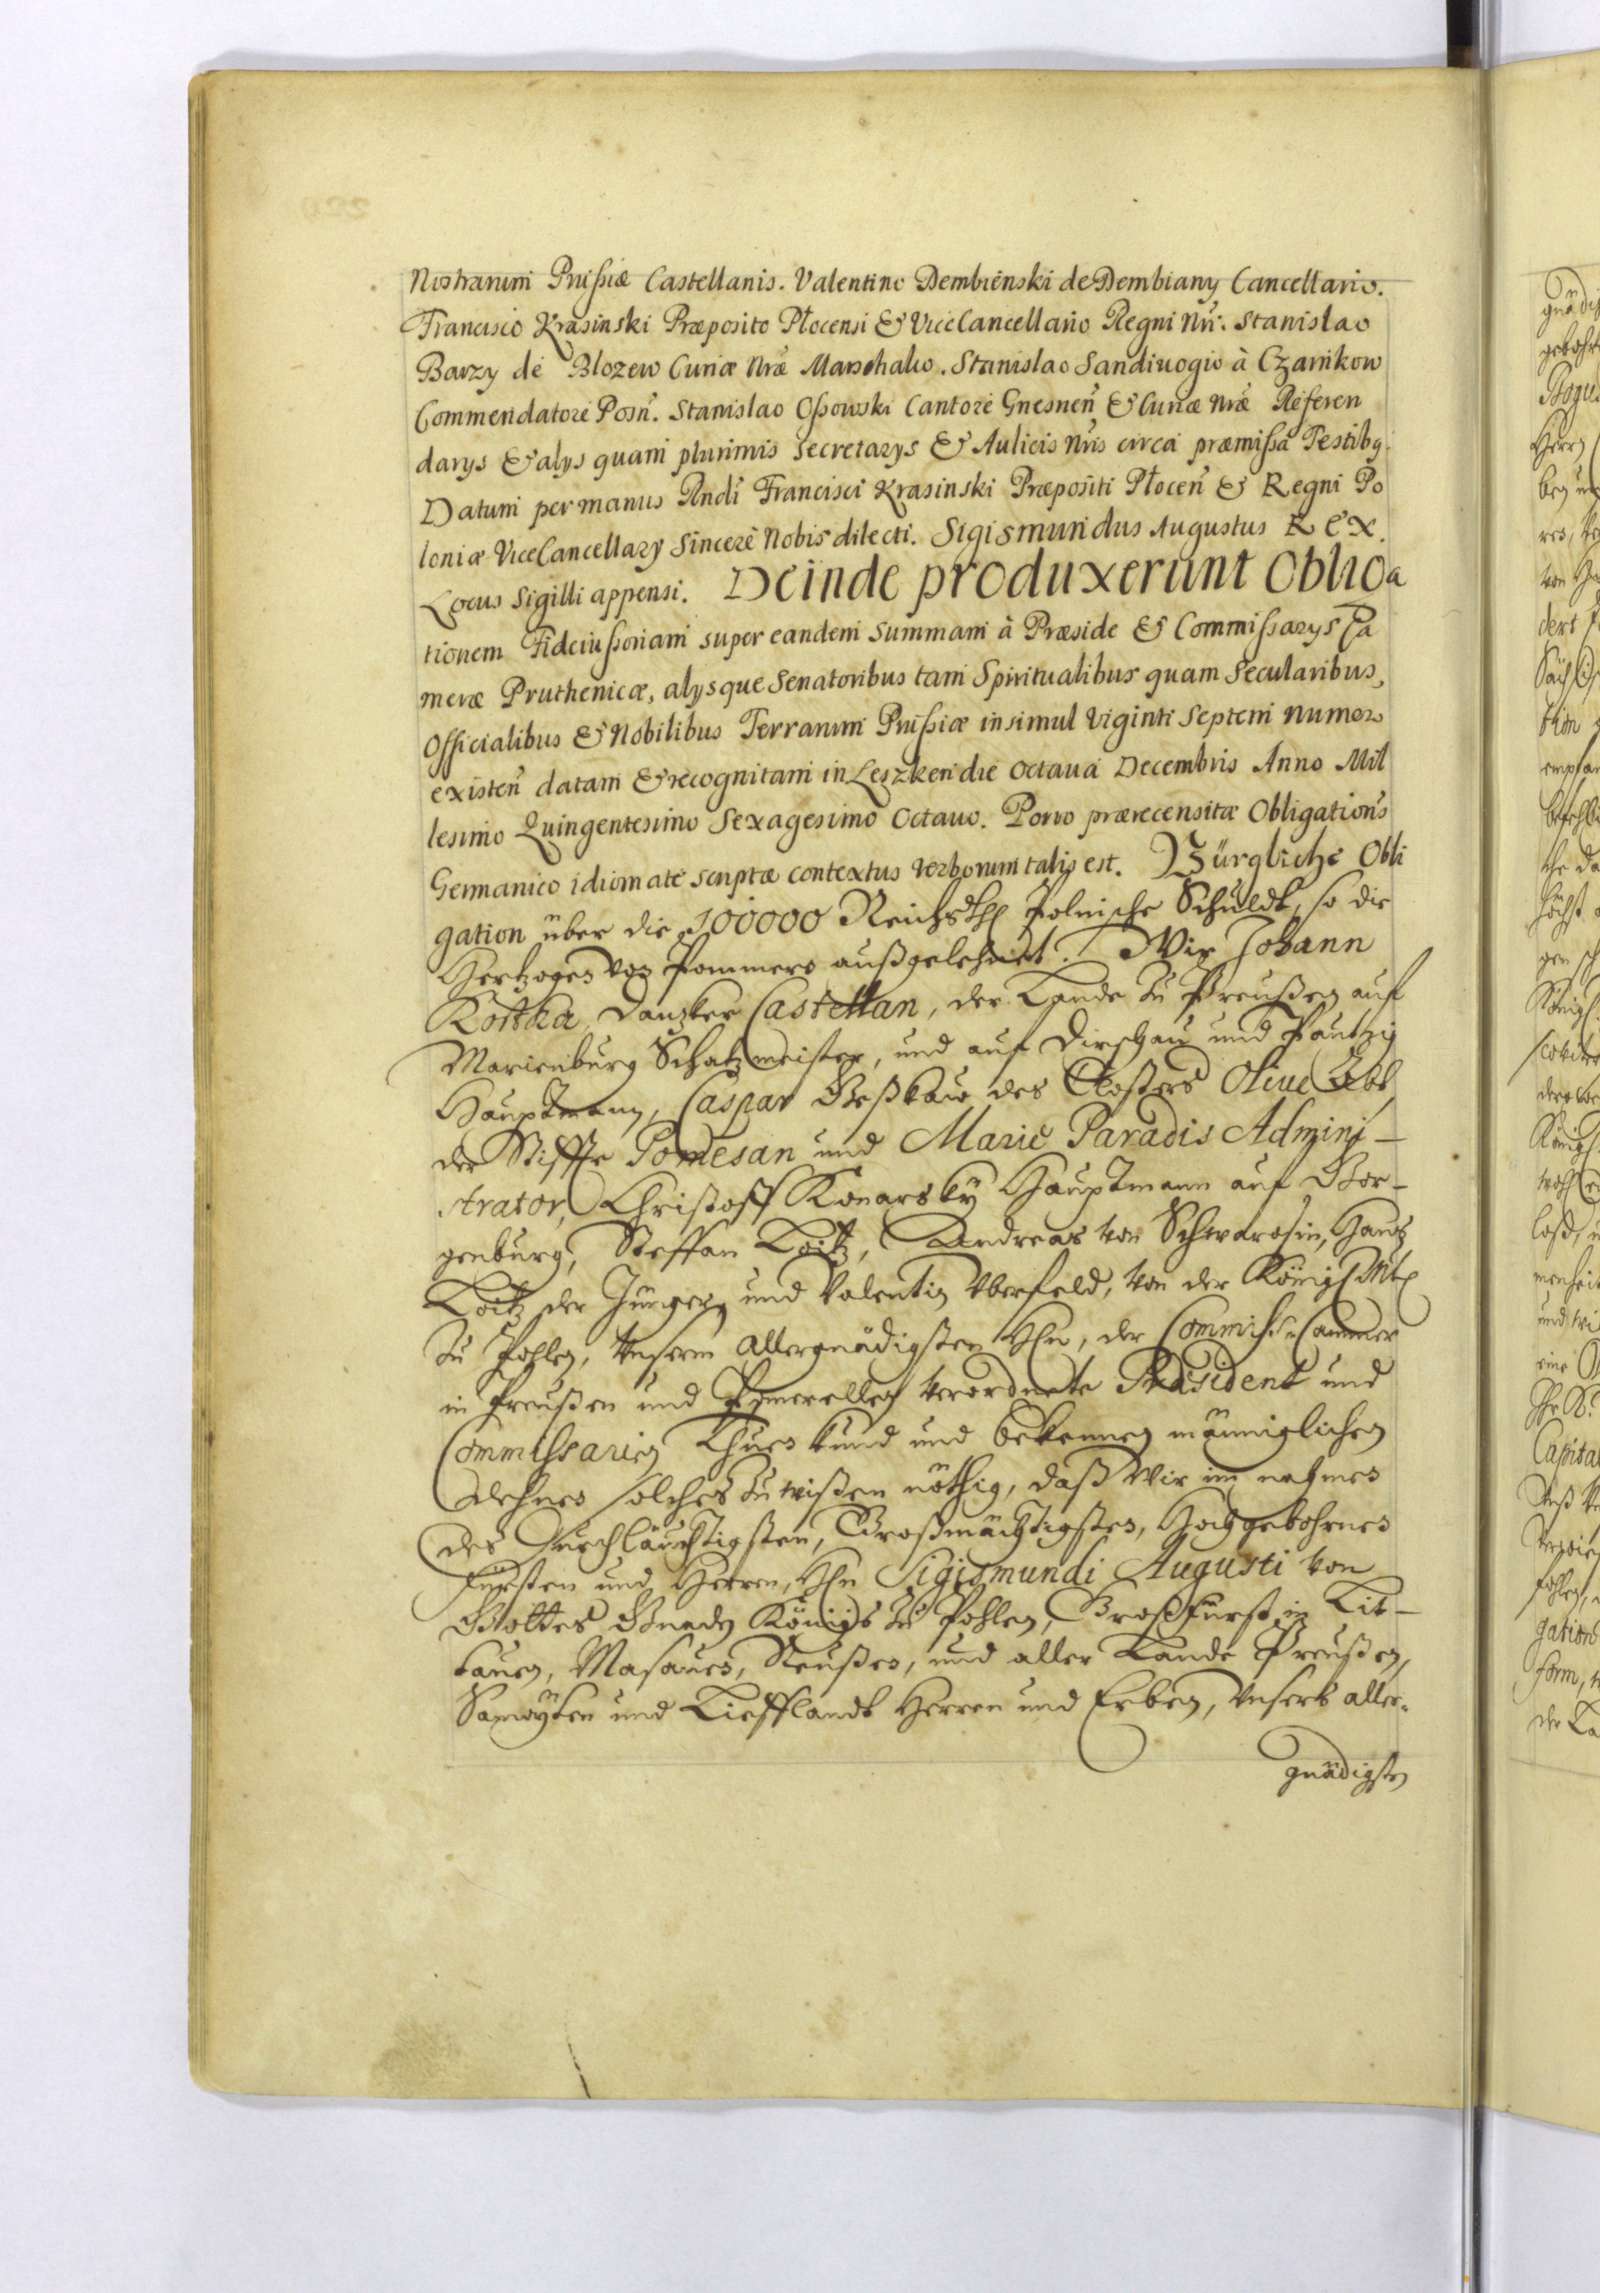 Nostrarum Prussiæ Castellanis. Valentino Dembienski de Dembiany Cancellario.
Francisco Krasinski Præposito Płocensi & ViceCancellario Regni Nri. Stanislao
Barzy de Blozew Curiæ Nræ Marschalco. Stanislao Sandivogio à Czarnkow
Commendatore Posn. Stanislao Ossowski Cantore Gnesnen & Curiæ Nræ Referen
darys & alys quam plurimis Secretarys & Aulicis Nris circa præmissa Testibq.
Datum per manus Rndi Francisci Krasinski Præpositi Płocen & Regni Po
loniæ ViceCancellary Sincerè Nobis dilecti. Sigismundus Augustus REX.
Locus Sigilli appensi. Deinde produxerunt Obliga
tionem Fideiussoriam super eandem Summam à Præside & Commissarys Ca
meræ Pruthenicæ, alysque Senatoribus tam Spiritualibus quam Secularibus,
Officialibus & Nobilibus Terrarum Prussiæ insimul Viginti Septem Numero
existen datam & recognitam in Leszken die Octava Decembris Anno Mil
lesimo Quingentesimo Sexagesimo Octavo. Porro prærecensitæ Obligationis
Germanico idiomate scriptæ contextus verborum talis est. Bürgliche Obli
gation über die 100000 Reichsthl Polnische Schuldt, so die
Hertzogen von Pommern außgelehnet. Wir Johann
Kostka, Danzker Castellan, der Lande zu Preußen auf
Marienburg Schatzmeister, und auf Dirschau und Pautzig
Hauptmann, Caspar Geßkaw des Closters Olive Abt,
der Stiffte Pomesan und Marie Paradis Admini-
strator, Christoff Konarsky Hauptmann auf Bor-
genburg, Steffan Loitz, Andreas von Schwarosin, Hans
Loitz der Jünger, und Valentin Uberfeld, von der Königl Mtt
zu Pohlen, Unserm Allergnädigsten Hn, der Commiss: Cammer
in Preußen und Pomerellen verordnete Præsident und
Commissarien Thuen kund und bekennen männiglichen
dehnen solches zu wißen nöthig, daß Wir im nahmen
des Durchläuchtigsten, Großmächtigsten, Hochgebohrnen
Fürsten und Herren, Hn Sigismundi Augusti von
Gottes Gnaden Königs zu Pohlen, Großfürst in Lit-
tauen, Masauen, Reußen, und aller Lande Preußen,
Samoyten und Liefflandt Herren und Erben, Unsers aller-
gnädigsten